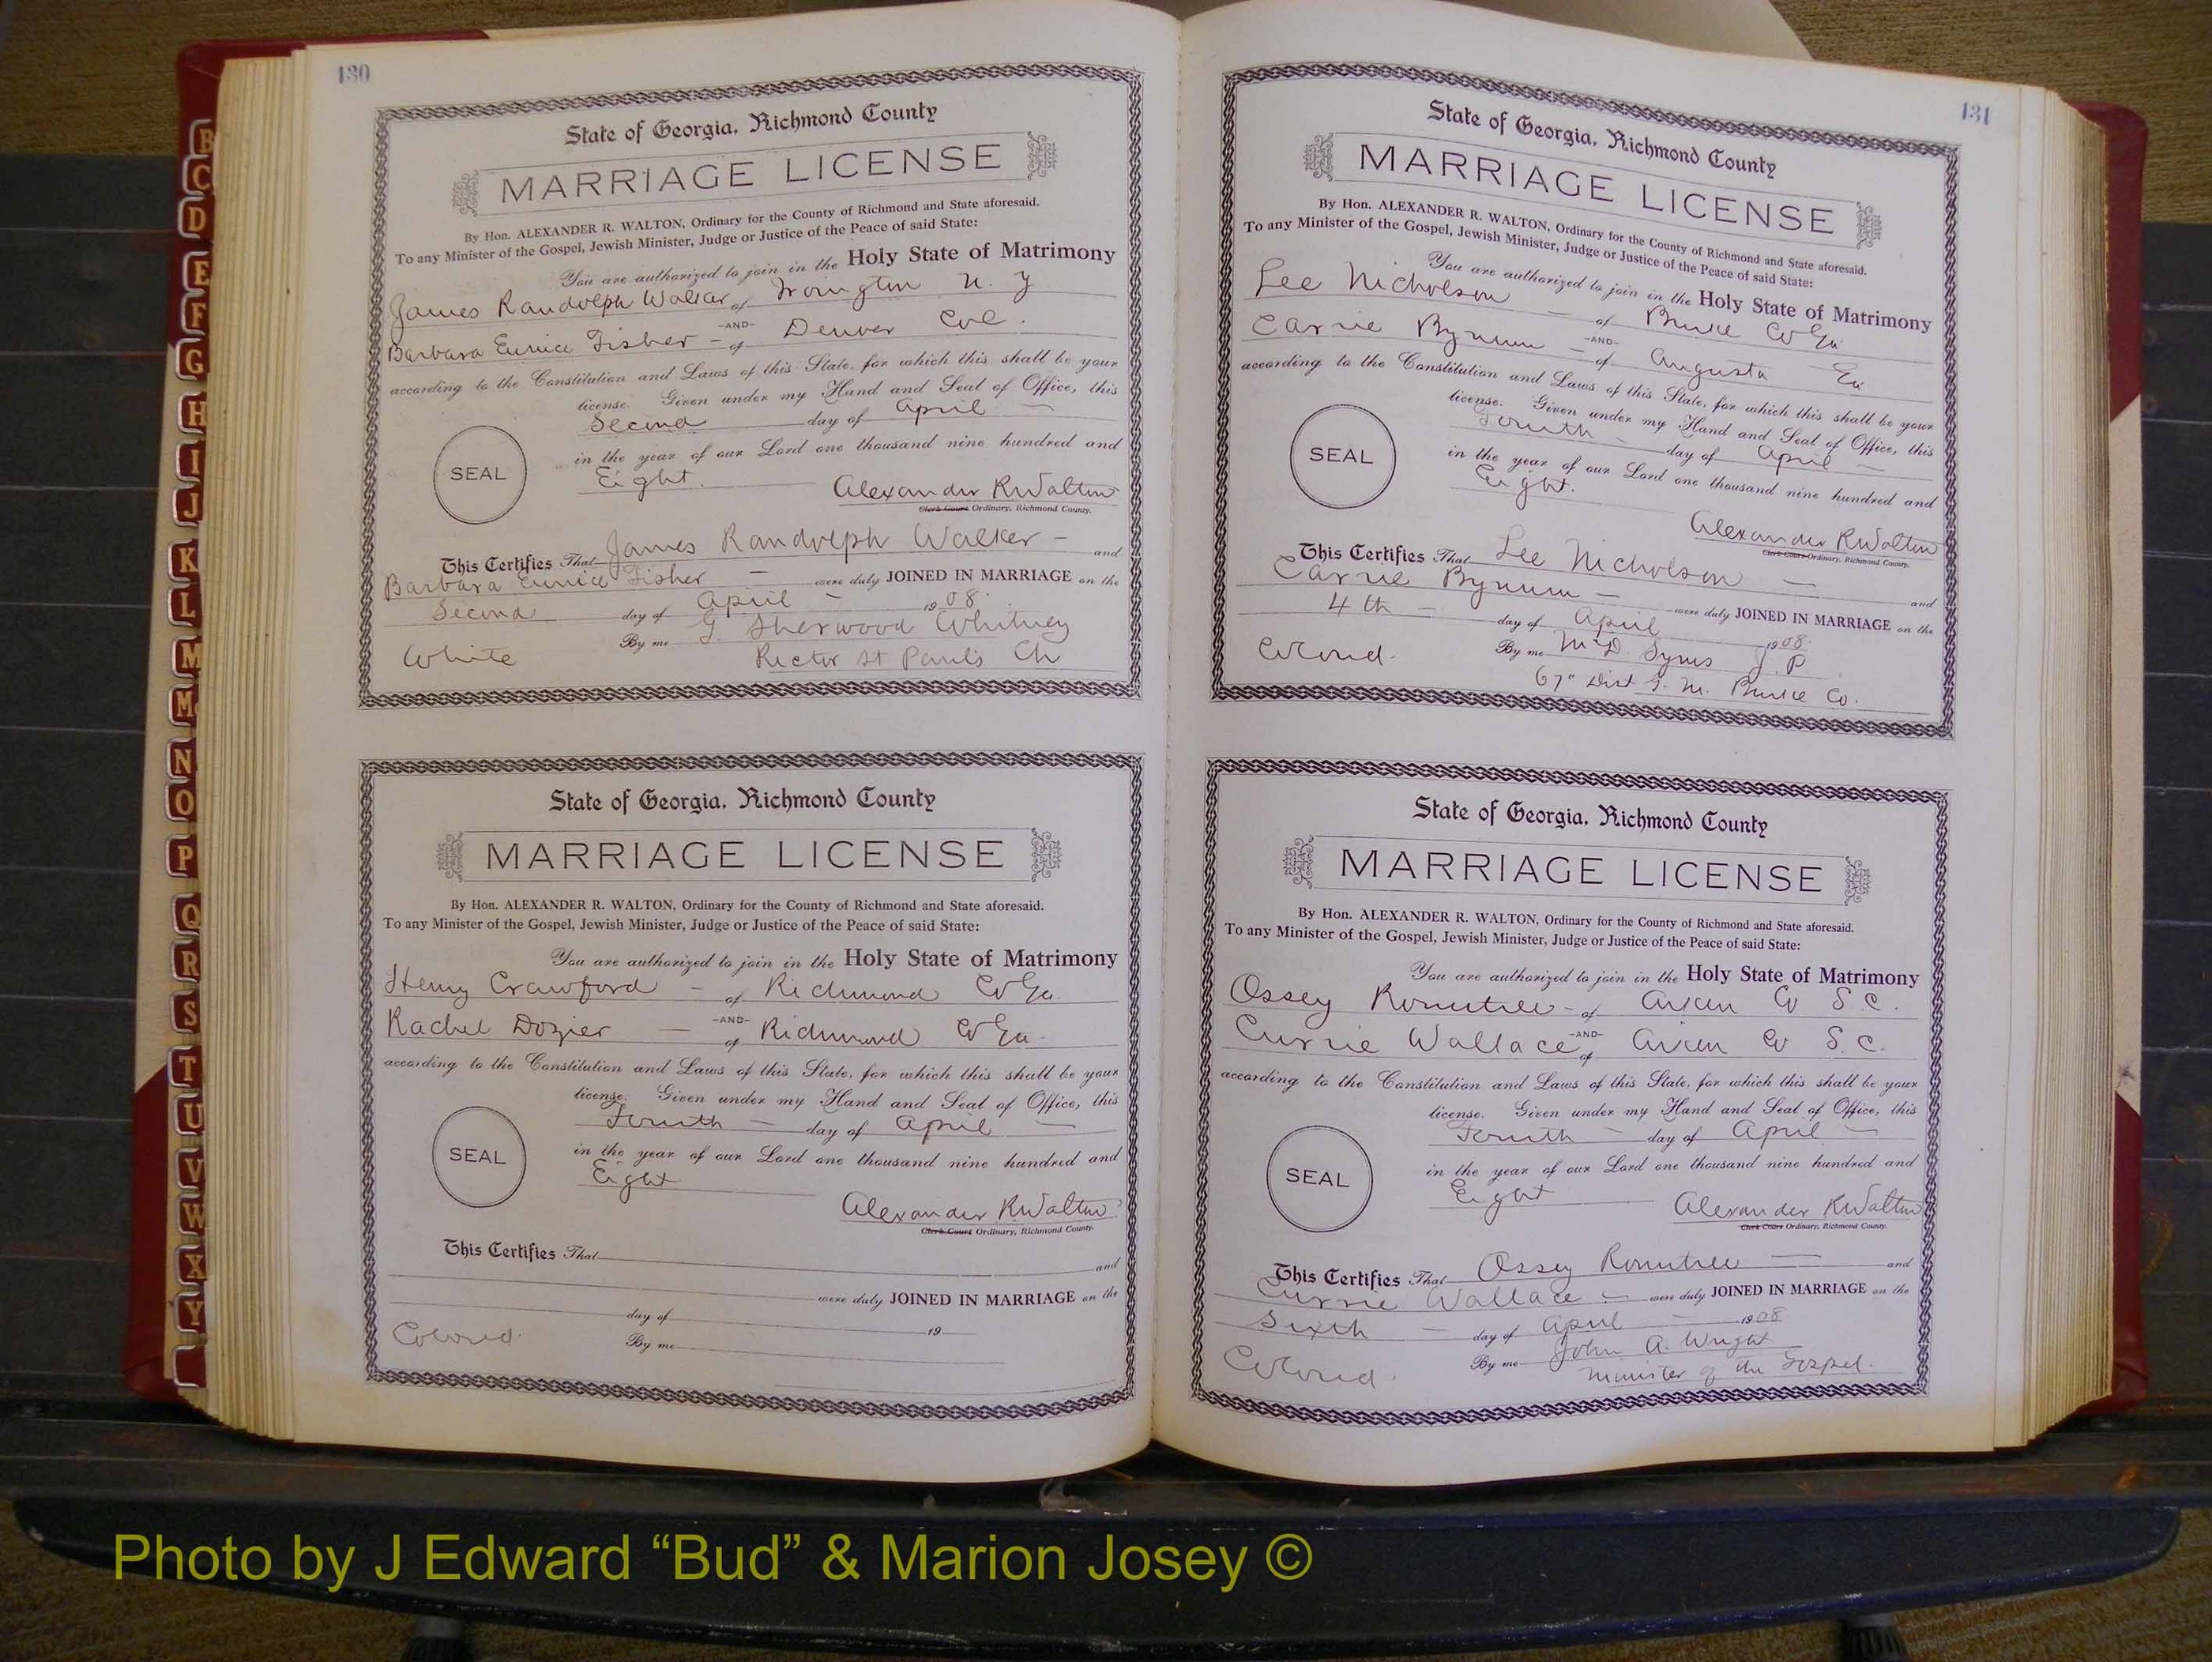 130
State of Georgia, Richmond County
MARRIAGE LICENSE
By Hon. ALEXANDER R. WALTON, Ordinary for the County of Richmond and State aforesaid.
To any Minister of the Gospel, Jewish Minister, Judge or Justice of the Peace of said State:
You are authorized to join in the Holy State of Matrimony
James Randolph Walker of Irvington N. Y
-AND-
Barbara Eunice Fisher - of Denver Col.
according to the Constitution and Laws of this State, for which this shall be your
license. Given under my Hand and Seal of Office, this
Second day of April
in the year of our Lord one thousand nine hundred and
SEAL
Eight.
Alexander R Walton
Clerk Court Ordinary, Richmond County.
This Certifies That James Randolph Walker - and
Barbara Eunice Fisher - were duly JOINED IN MARRIAGE on the
Second day of April - 1908.
By me G. Sherwood Whitney
White Rector St Paul's Ch
State of Georgia, Richmond County
MARRIAGE LICENSE
By Hon. ALEXANDER R. WALTON, Ordinary for the County of Richmond and State aforesaid.
To any Minister of the Gospel, Jewish Minister, Judge or Justice of the Peace of said State:
You are authorized to join in the Holy State of Matrimony
Henry Crawford - of Richmond Co Ga.
-AND-
Rachel Dozier - of Richmond Co Ga.
according to the Constitution and Laws of this State, for which this shall be your
license. Given under my Hand and Seal of Office, this
Fourth - day of April -
in the year of our Lord one thousand nine hundred and
SEAL
Eight
Alexander R Walton
Clerk Court Ordinary, Richmond County.
This Certifies That and
were duly JOINED IN MARRIAGE on the
day of 19
Colored. By me
131
State of Georgia, Richmond County
MARRIAGE LICENSE
By Hon. ALEXANDER R. WALTON, Ordinary for the County of Richmond and State aforesaid.
To any Minister of the Gospel, Jewish Minister, Judge or Justice of the Peace of said State:
You are authorized to join in the Holy State of Matrimony
Lee Nicholson - of Burke Co Ga
-AND-
Carrie Bynum - of Augusta Ga
according to the Constitution and Laws of this State, for which this shall be your
license. Given under my Hand and Seal of Office, this
Fourth - day of April -
in the year of our Lord one thousand nine hundred and
SEAL
Eight.
Alexander R Walton
Clerk Court Ordinary, Richmond County.
This Certifies That Lee Nicholson - and
Carrie Bynum - were duly JOINED IN MARRIAGE on the
4th - day of April 1908.
Colored. By me McD. Syms J. P.
67" Dist G. M. Burke Co.
State of Georgia, Richmond County
MARRIAGE LICENSE
By Hon. ALEXANDER R. WALTON, Ordinary for the County of Richmond and State aforesaid.
To any Minister of the Gospel, Jewish Minister, Judge or Justice of the Peace of said State:
You are authorized to join in the Holy State of Matrimony
Ossey Rountree - of Aiken Co S.C.
-AND-
Currie Wallace of Aiken Co S.C.
according to the Constitution and Laws of this State, for which this shall be your
license. Given under my Hand and Seal of Office, this
Fourth - day of April -
in the year of our Lord one thousand nine hundred and
SEAL
Eight
Alexander R Walton
Clerk Court Ordinary, Richmond County.
This Certifies That Ossey Rountree - and
Currie Wallace - were duly JOINED IN MARRIAGE on the
Sixth - day of April - 1908
By me John A. Wright
Colored. Minister of the Gospel.
B
C
D
E
F
G
H
I
J
K
L
M
Mc
N
O
P
Q
R
S
T
U
V
W
X
Y
Photo by J Edward “Bud” & Marion Josey ©